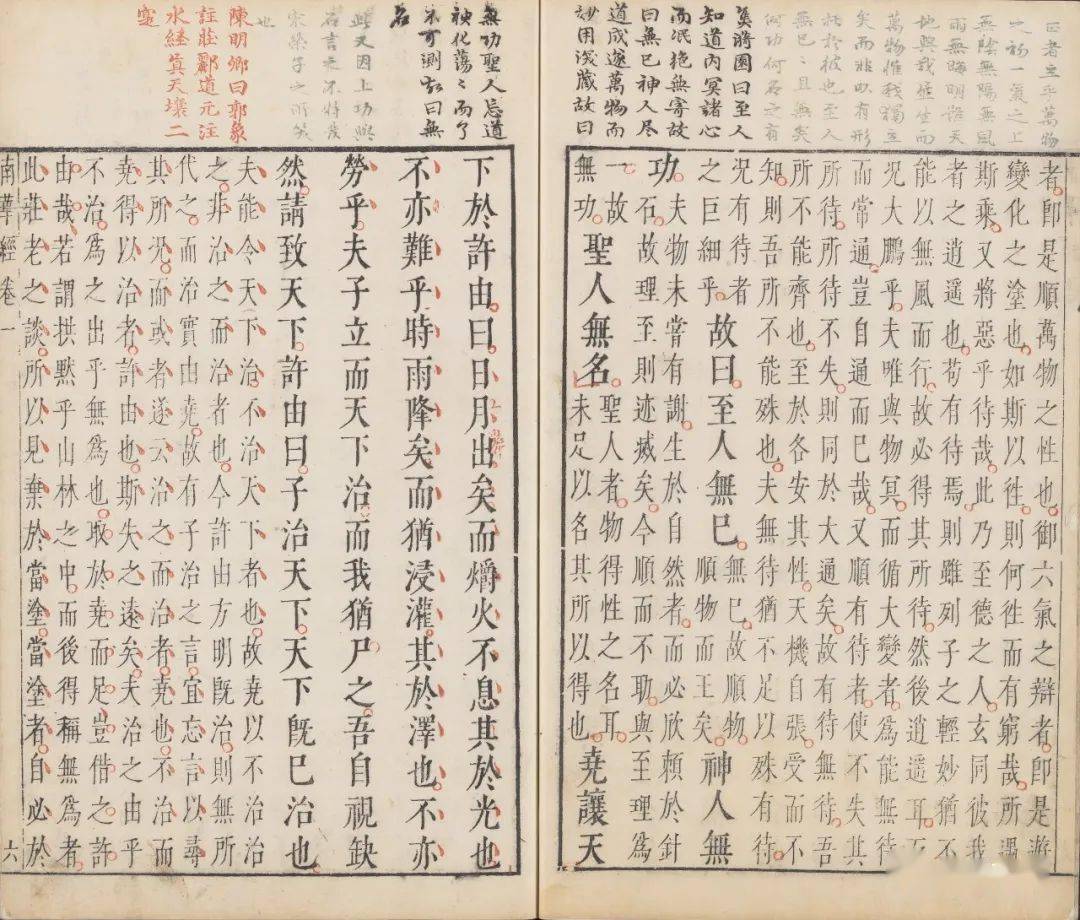 之初一氣之上
無陰無陽無風
地與我併生而
萬物惟我獨立
矣而非以有形
托於彼也至人
無已〻且無矣
何功何名之有
知道內冥諸心
而泯絶無寄故
曰無已神人尽
道成遂萬物而
妙用深藏故曰
者。卽是順萬物之性也。御六氣之辯者。卽是遊
變化之塗也。如斯以徃。則何徃而有窮哉。所遇
斯乘。又將惡乎待哉。此乃至德之人。玄同彼我
者之逍遥也。苟有待焉。則雖列子之輕妙。猶不
能以無風而行。故必得其所待。然後逍遥耳。而
况大鵬乎。夫唯與物冥而循大變者。爲能無待
而常通。豈自通而已哉。又順有待者。使不失其
所待。所待不失。則同於大通矣。故有待無待。吾
所不能齊也。至於各安其性。天機自張。受而不
知。則吾所不能殊也。夫無待猶不足以殊有待。
况有待者之巨細乎。故曰。至人無已。無已。故順物。順物而王矣。神人無
功。夫物未嘗有謝生於自然者。而必欣賴於針石。故理至則迹滅矣。今順而不助。與至理爲
一。故無功。聖人無名。聖人者。物得性之名耳。未足以名其所以得也。堯讓天
無功聖人忘道
神化蕩〻而了
不可測故曰無
名
此又因上功與
名言之不特為
宋榮子之所笑
也
陳明卿曰郭象
註莊酈道元注
水経真天壤二
下於許由。曰。日月出矣。而爝火不息。其於光也。
不亦難乎。時雨降矣。而猶浸灌。其於澤也。不亦
勞乎。夫子立而天下治。而我猶尸之。吾自視缺
然。請致天下。許由曰。子治天下。天下旣已治也。
夫能令天下治。不治天下者也。故堯以不治治
之。非治之而治者也。今許由方明旣治。則無所
代之。而治實由堯。故有子治之言。宜忘言以尋
其所况。而或者遂云。治之而治者。堯也。不治而
堯得以治者。許由也。斯失之遠矣。夫治之由乎
不治。爲之出乎無爲也。取於堯而足。豈借之許
由哉。若謂拱黙乎山林之中。而後得稱無爲者。
此莊老之談。所以見棄於當塗。當塗者。自必於
南華經卷一 六